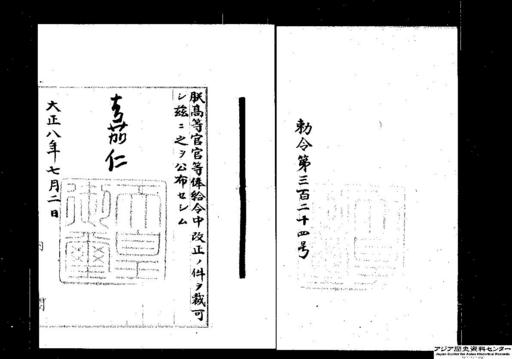 朕高等官官等俸給令中改正ノ件ヲ裁可
シ玆ニ之ヲ公布セシム
嘉仁
天皇
御璽
大正八年七月二日
勅令第三百二十四号
アジア歴史資料センター
Japan Center for Asian Historical Records